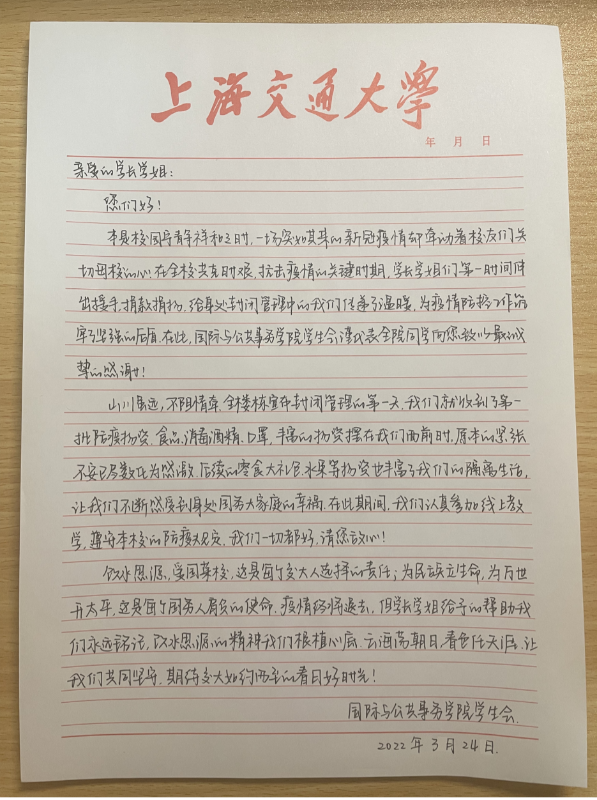 上海交通大学
年 月 日
亲爱的学长学姐：
您们好！
本是校园春和景明之时，一场突如其来的新冠疫情却牵动着校友们关
切母校的心。在全校共克时艰，抗击疫情的关键时期，学长学姐们第一时间伸
出援手，捐款捐物，给身处封闭管理中的我们传递了温暖，为疫情防控工作筑
牢了坚强的后盾。在此，国际与公共事务学院学生会谨代表全院同学向您致以最诚
挚的感谢！
山川虽远，不阻情牵。全楼栋宣布封闭管理的第一天，我们就收到了第一
批防疫物资。食品、消毒酒精、口罩，丰富的物资摆在我们面前时，原本的紧张
不安已尽数化为感激。后续的零食大礼包、水果等物资也丰富了我们的隔离生活，
让我们不断感受到身处国务大家庭的幸福。在此期间，我们认真参加线上教
学，遵守学校的防疫规定，我们一切都好，请您放心！
饮水思源，爱国荣校，这是每个交大人选择的责任；为民族立生命，为万世
开太平，这是每个国务人肩负的使命。疫情终将退去，但学长学姐给予的帮助我
们永远铭记，饮水思源的精神我们根植心底。云海荡朝日，春色任天涯。让
我们共同坚守，期待交大如约而至的春日好时光！
国际与公共事务学院学生会
2022年3月24日.